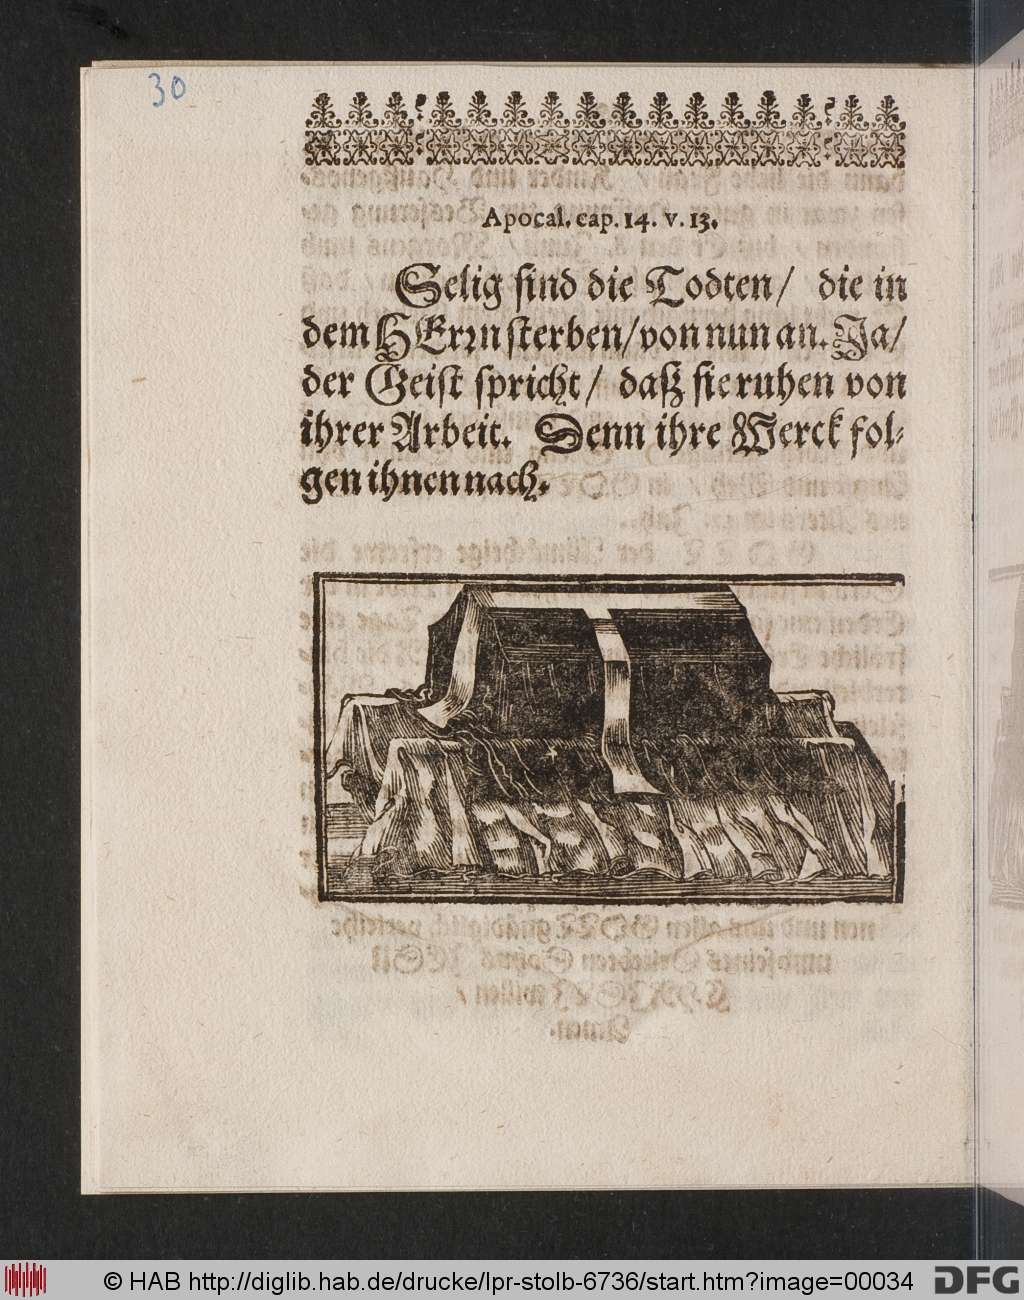 30
Apocal. cap. 14. v. 13.
Selig sind die Todten/ die in
dem HErꝛn sterben/ von nun an. Ja/
der Geist spricht/ daß sie ruhen von
ihrer Arbeit. Denn ihre Werck fol-
gen ihnen nach.
© HAB http://diglib.hab.de/drucke/lpr-stolb-6736/start.htm?image=00034
DFG